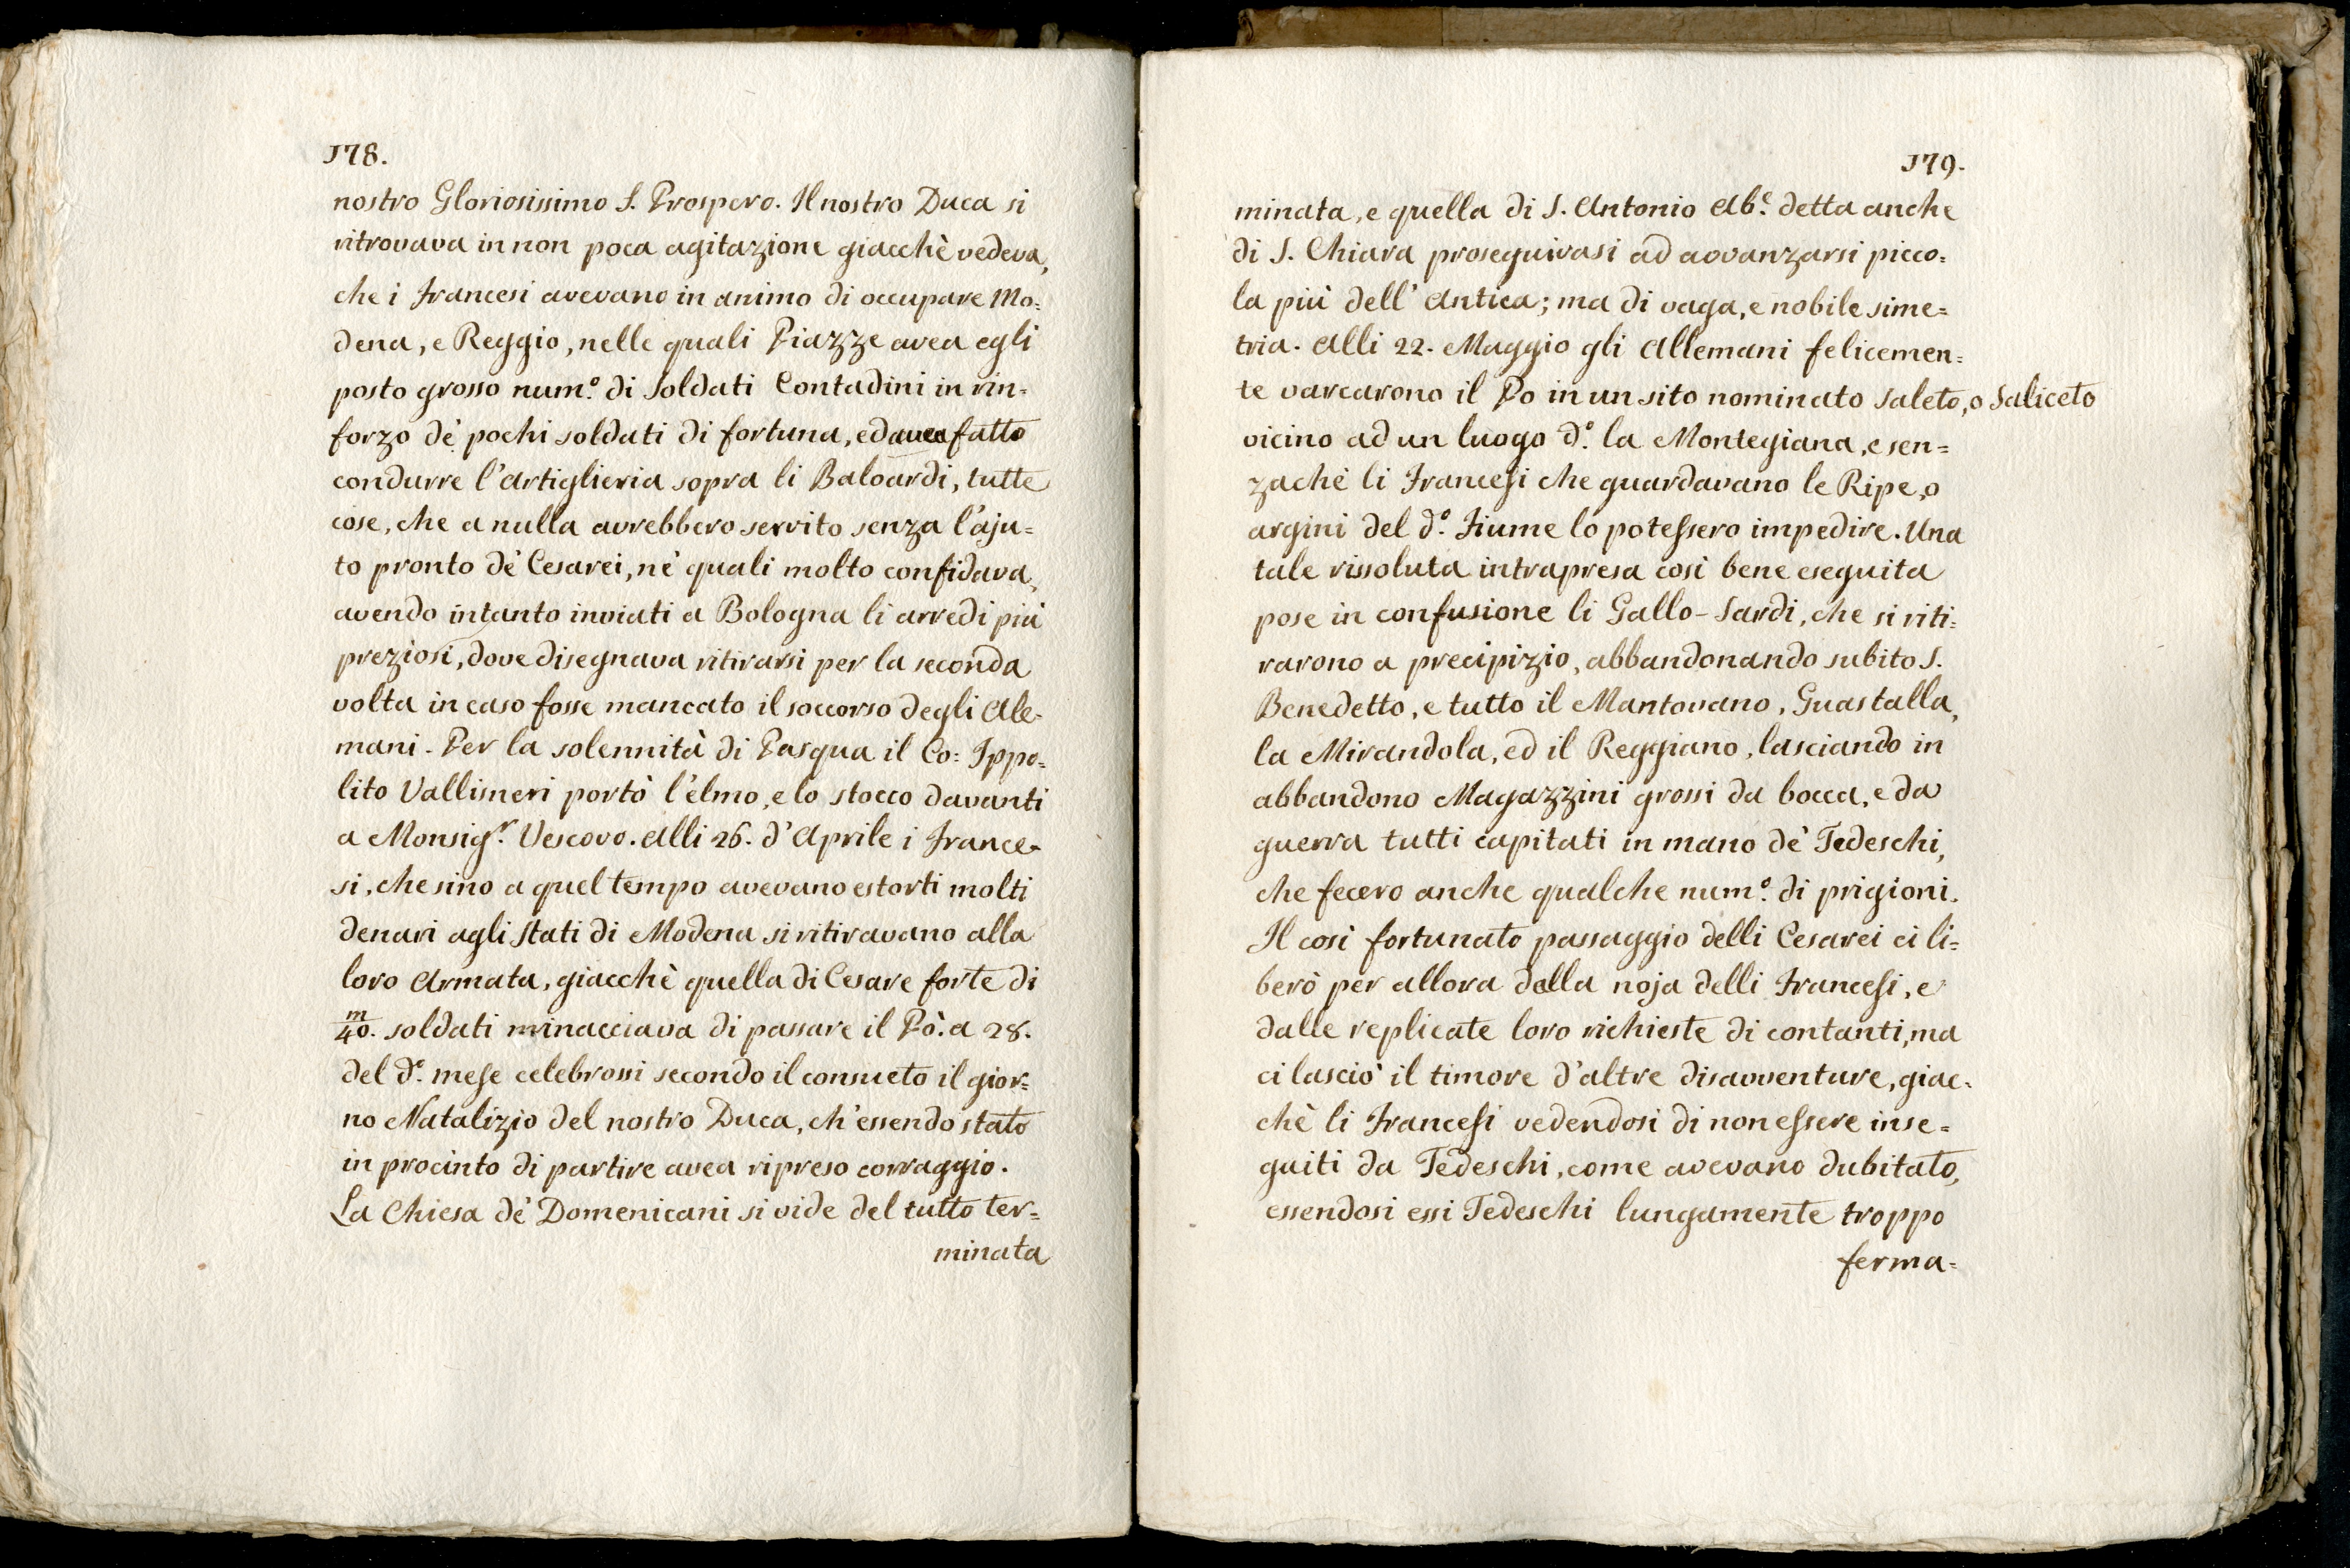 178.
nostro Gloriosissimo S. Prospero. Il nostro Duca si
ritrovava in non poca agitazione giacchè vedeva,
che i Francesi avevano in animo di occupare Mo=
dena, e Reggio, nelle quali Piazze avea egli
posto grosso num.º di soldati Contadini in rin-
forzo de' pochi soldati di fortuna, ed avea fatto
condurre l'Artiglieria sopra li Baloardi, tutte
cose, che a nulla avrebbero servito senza l'aju=
to pronto de' Cesarei, ne' quali molto confidava,
avendo intanto inviati a Bologna li arredi più
preziosi, dove disegnava ritirarsi per la seconda
volta in caso fosse mancato il soccorso degli Ale-
mani. Per la solennità di Pasqua il Co: Ippo=
lito Vallisneri portò l'elmo, e lo stocco davanti
a Monsig.r Vescovo. Alli 26. d'Aprile i France-
si, che sino a quel tempo avevano estorti molti
denari agli Stati di Modena si ritiravano alla
loro Armata, giacchè quella di Cesare forte di
m/40. soldati minacciava di passare il Pò. a 28.
del d.º mese celebrossi secondo il consueto il gior=
no Natalizio del nostro Duca, ch'essendo stato
in procinto di partire avea ripreso corraggio.
La Chiesa de' Domenicani si vide del tutto ter=
minata
179.
minata, e quella di S. Antonio Ab.e detta anche
di S. Chiara proseguivasi ad avvanzarsi picco=
la più dell'Antica; ma di vaga, e nobile sime=
tria. Alli 22. Maggio gli Allemani felicemen=
te varcarono il Po in un sito nominato Saleto, o Saliceto
vicino ad un luogo d.º la Montegiana, e sen=
zachè li Francesi che guardavano le Ripe, o
argini del d.º Fiume lo potessero impedire. Una
tale rissoluta intrapresa così bene eseguita
pose in confusione li Gallo-Sardi, che si riti=
rarono a precipizio, abbandonando subito S.
Benedetto, e tutto il Mantovano, Guastalla,
la Mirandola, ed il Reggiano, lasciando in
abbandono Magazzini grossi da bocca, e da
guerra tutti capitati in mano de' Tedeschi,
che fecero anche qualche num.º di prigioni.
Il così fortunato passaggio delli Cesarei ci li=
berò per allora dalla noja delli Francesi, e
dalle replicate loro richieste di contanti, ma
ci lasciò il timore d'altre disavventure, giac-
chè li Francesi vedendosi di non essere inse=
guiti da Tedeschi, come avevano dubitato,
essendosi essi Tedeschi lungamente troppo
ferma=